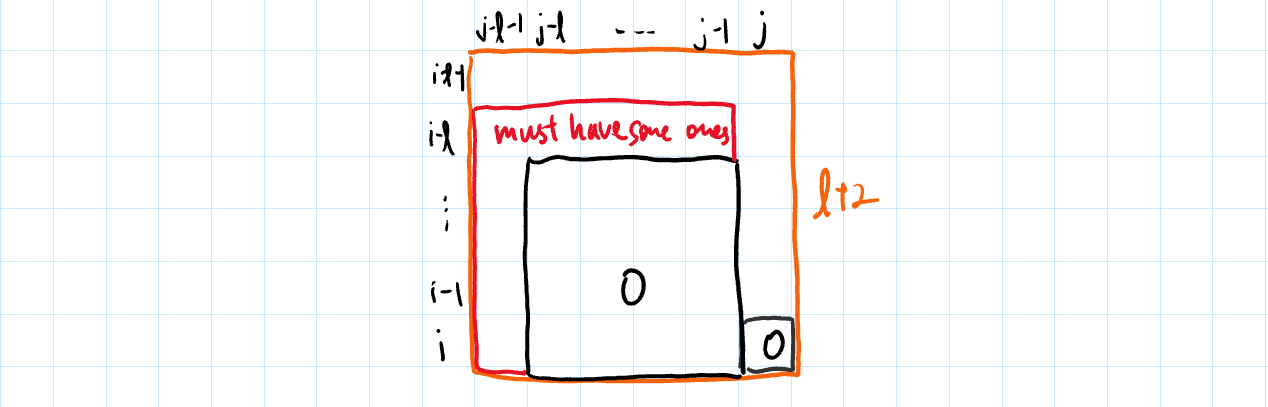 j-l-1 j-l ---- j-1 j
i-l-1
i-l must have some ones
⋮
l+2
i-1 0
i 0